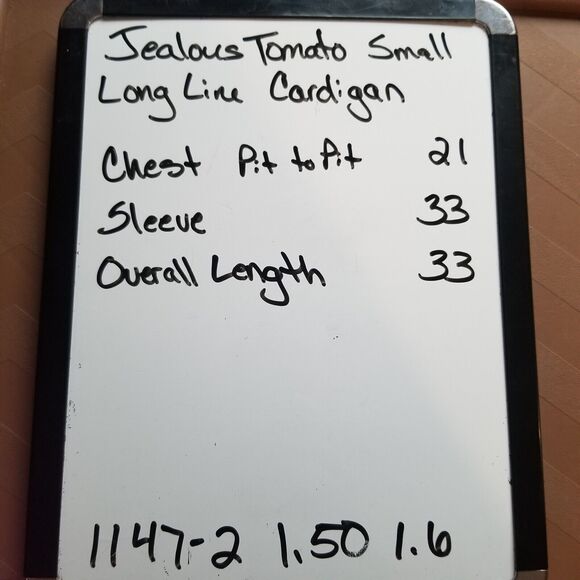 Jealous Tomato Small
Long Line Cardigan
Chest Pit to Pit 21
Sleeve 33
Overall Length 33
1147-2 1.50 1.6